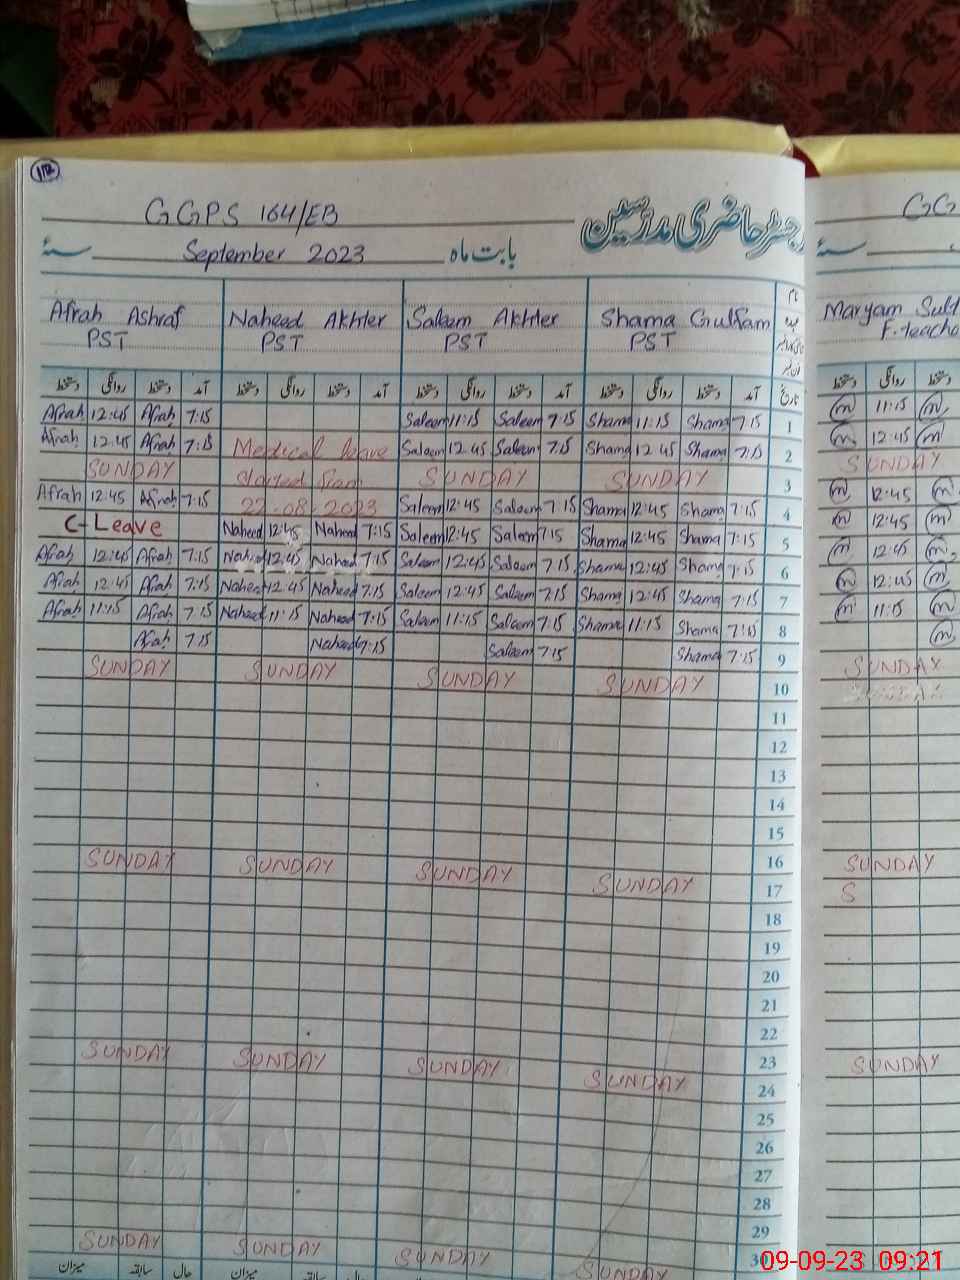 112
GGPS 164/EB
رجسٹر حاضری مدرسین
GG
September 2023 بابت ماہ
سنۂ
سنۂ
Afrah Ashraf Naheed Akhter Saleem Akhter Shama Gulfam
PST PST PST PST
Maryam Sult
F. teache
دستخط روانگی دستخط آمد دستخط روانگی دستخط آمد دستخط روانگی دستخط آمد دستخط روانگی دستخط آمد تاریخ دستخط روانگی دستخط
Afrah 12:45 Afrah 7:15 Saleem 11:15 Saleem 7:15 Shama 11:15 Shama 7:15 1 m 11:15 m
Afrah 12:45 Afrah 7:15 Medical leave Saleem 12:45 Saleem 7:15 Shama 12:45 Shama 7:15 2 m 12:45 m
SUNDAY started from SUNDAY SUNDAY 3 SUNDAY
Afrah 12:45 Afrah 7:15 22-08-2023 Saleem 12:45 Saleem 7:15 Shama 12:45 Shama 7:15 4 m 12:45 m
C-Leave Naheed 12:45 Naheed 7:15 Saleem 12:45 Saleem 7:15 Shama 12:45 Shama 7:15 5 m 12:45 m
Afrah 12:45 Afrah 7:15 Naheed 12:45 Naheed 7:15 Saleem 12:45 Saleem 7:15 Shama 12:45 Shama 7:15 6 m 12:45 m
Afrah 12:45 Afrah 7:15 Naheed 12:45 Naheed 7:15 Saleem 12:45 Saleem 7:15 Shama 12:45 Shama 7:15 7 m 12:45 m
Afrah 11:15 Afrah 7:15 Naheed 11:15 Naheed 7:15 Saleem 11:15 Saleem 7:15 Shama 11:15 Shama 7:15 8 m 11:15 m
Afrah 7:15 Naheed 7:15 Saleem 7:15 Shama 7:15 9 m
SUNDAY SUNDAY SUNDAY SUNDAY 10 SUNDAY
11
12
13
14
15
16
SUNDAY SUNDAY SUNDAY SUNDAY 17 SUNDAY
S
18
19
20
21
22
23
SUNDAY SUNDAY SUNDAY SUNDAY 24 SUNDAY
25
26
27
28
29
30
SUNDAY SUNDAY SUNDAY SUNDAY
میزان سابقہ حال میزان سابقہ حال
09-09-23 09:21